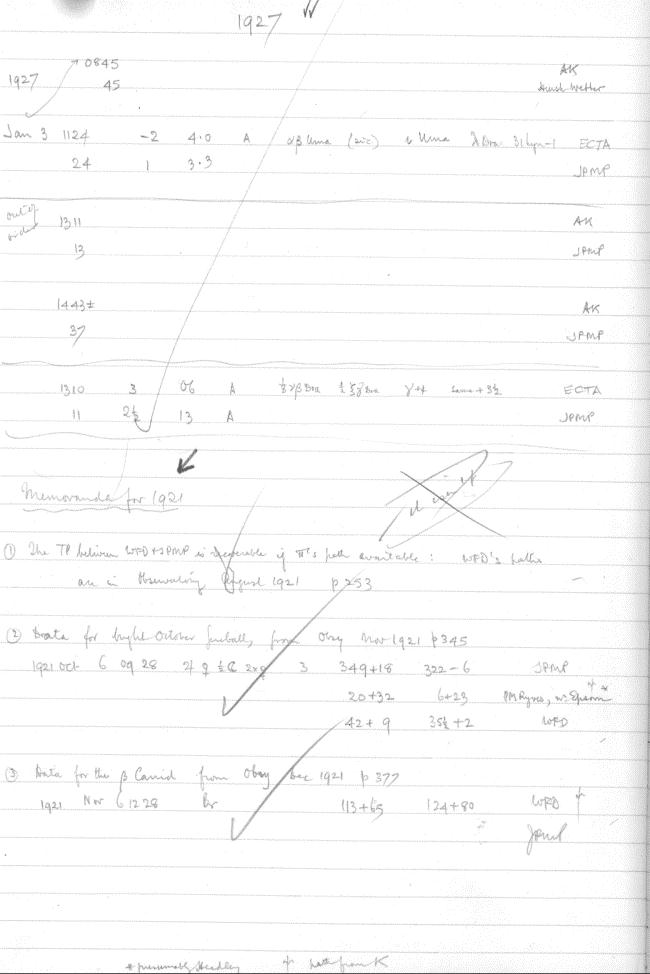 1927
0845 AK
1927 45
Jan 3 1124 -2 4.0 A αβ Uma (sic) Uma λ Boo 31 Lyn-1 ECTA
24 1 3.3 JPMP
out of order
1311 AK
13 JPMP
1443± AK
37 JPMP
1310 3 06 A Boo Boo ECTA
11 2½ 13 A JPMP
Memoranda for 1921
① The TP between WFD + JPMP is if path available: WFD's paths
are in Observatory August 1921 p 253
② Data for bright October fireball, from Obsy Nov 1921 p 345
1921 Oct 6 09 28 3 349+18 322-6 JPMP
20+32 6+23 PM Ryves,
42+9 35½+2 WFD
③ Data for the β Camid from Obsy Dec 1921 p 377
1921 Nov 6 12 28 113+65 124+80 WFD
JPMP
* presumably Headley path from K